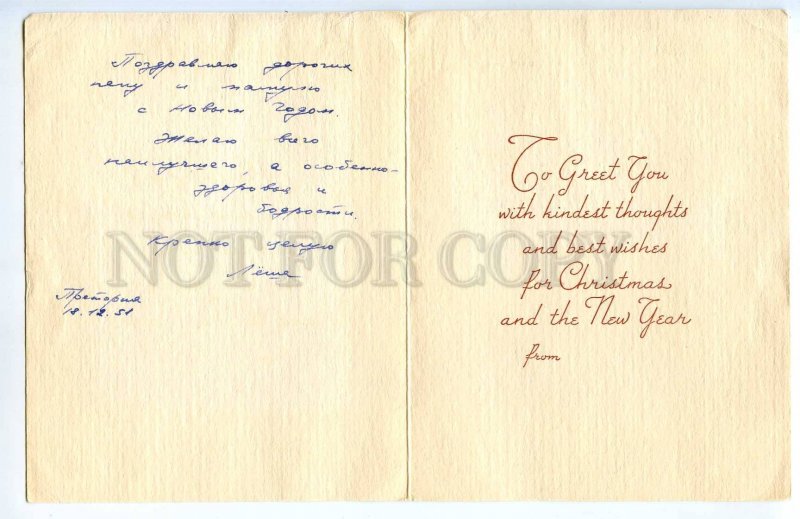 Поздравляю дорогих
папу и мамулю
с Новым Годом.
Желаю всего
наилучшего, а особенно-
здоровья и
бодрости.
Крепко целую
Лёша
Претория
18.12.51
To Greet You
with kindest thoughts
and best wishes
for Christmas
and the New Year
from
NOT FOR COPY